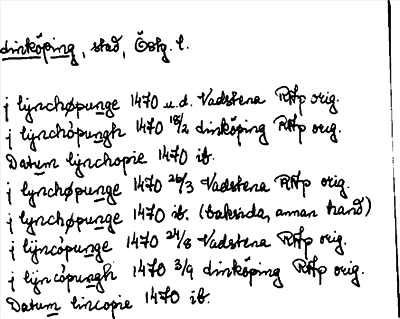 Linköping, stad, Östg. l.
j lynchøpunge 1470 u.d. Vadstena RAp orig.
j lynchòpungh 1470 18/2 Linköping RAp orig.
Datum lynchopie 1470 ib.
j lynchøpunge 1470 26/3 Vadstena RAp orig.
j lynchøpunge 1470 ib. (baksida, annan hand)
j lyncópunge 1470 24/8 Vadstena RAp orig.
j lyncópungh 1470 3/9 Linköping RAp orig.
Datum lincopie 1470 ib.